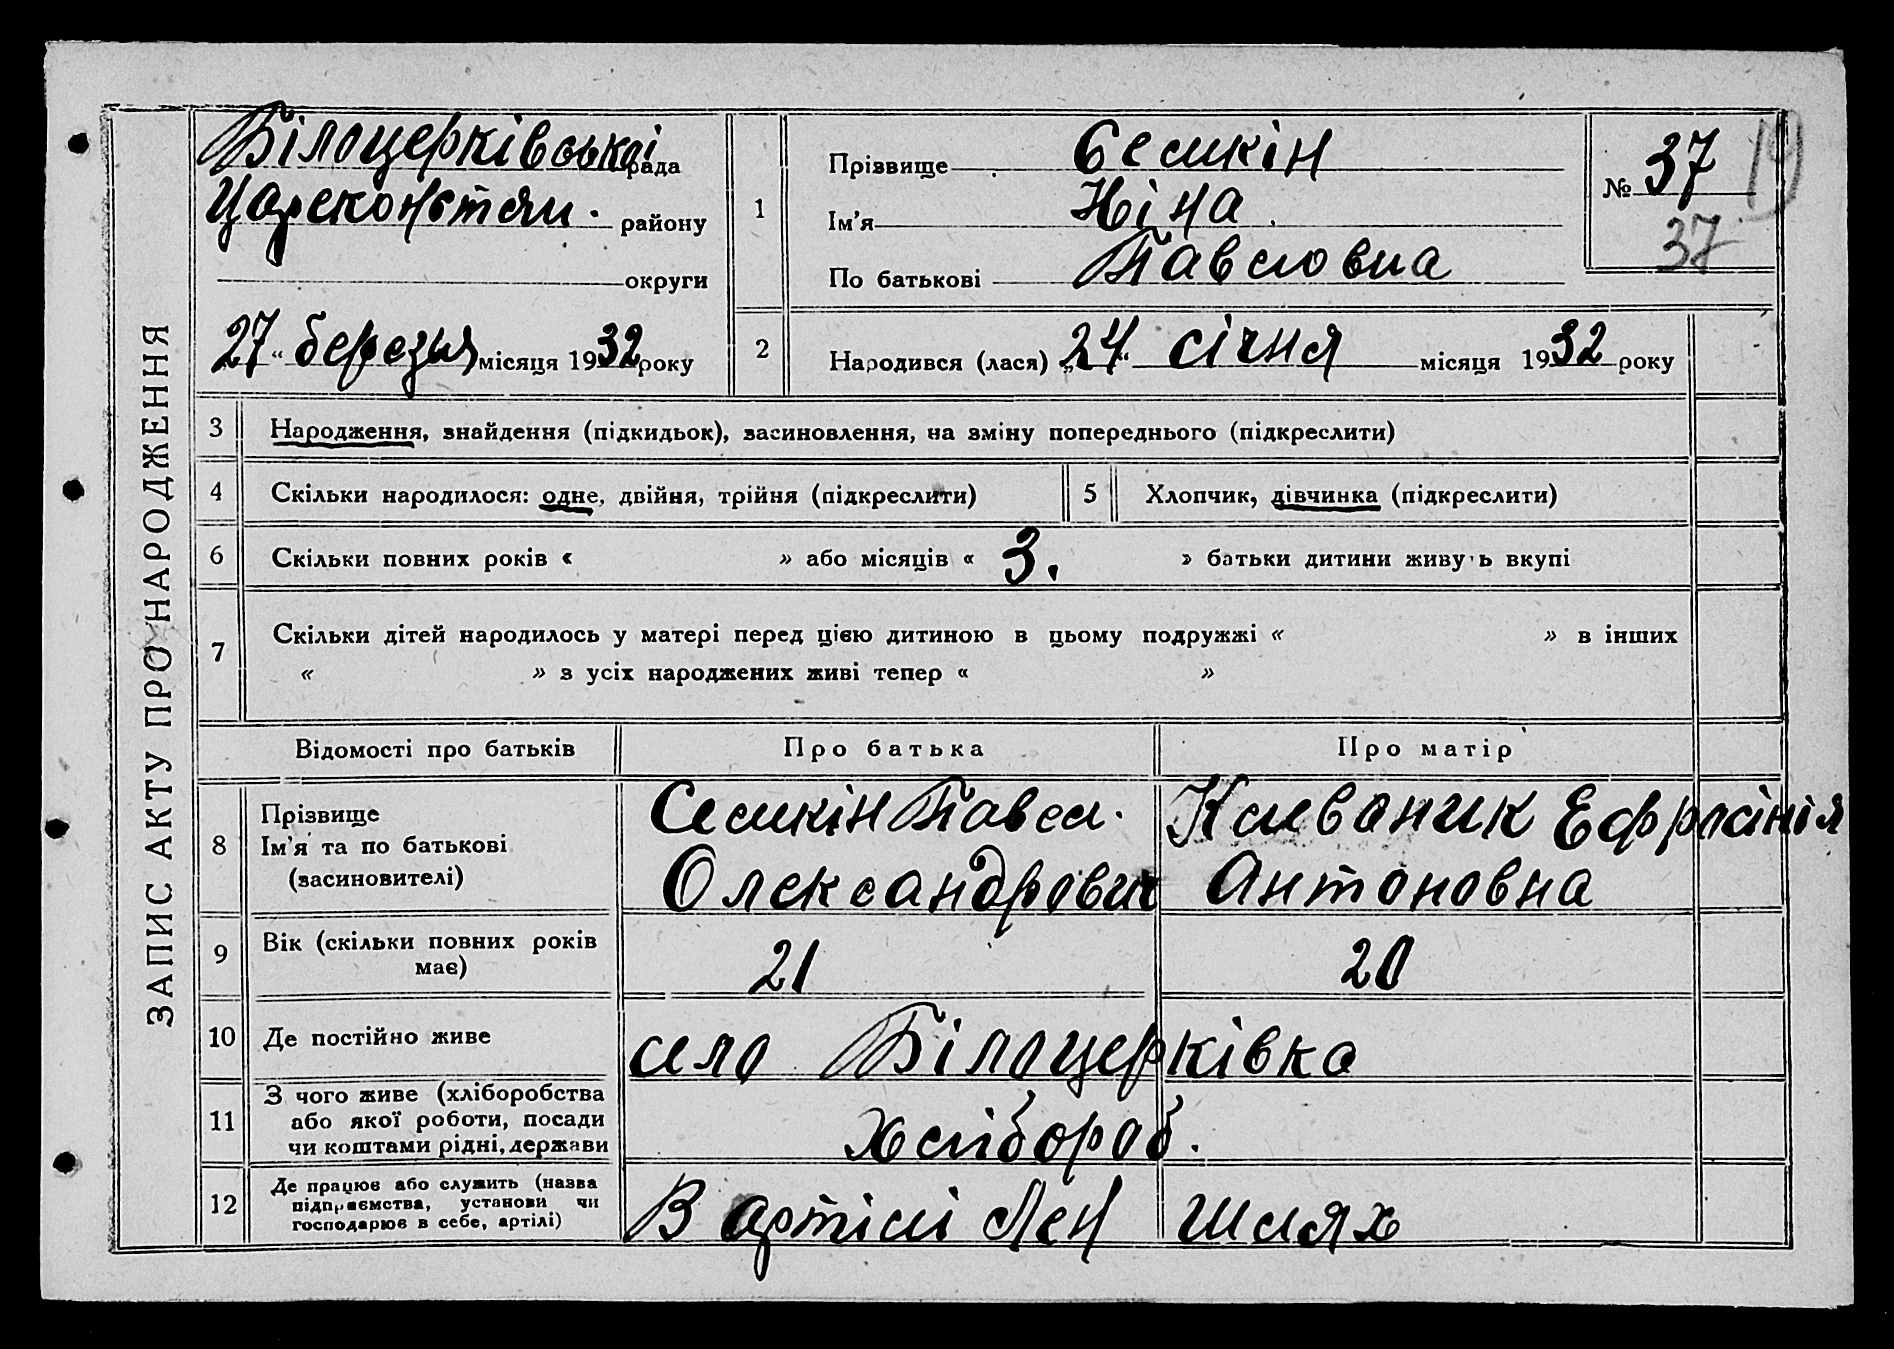 ЗАПИС АКТУ ПРО НАРОДЖЕННЯ
Білоцерківської рада
Цареконстян. району
округи
27 " березня місяця 1932 року
1
Прізвище Семкін
Ім'я Ніна
По батькові Павловна
№ 37
19
37
2
Народився (лася) „24" січня місяця 1932 року
3 Народження, знайдення (підкидьок), засиновлення, на зміну попереднього (підкреслити)
4 Скільки народилося: одне, двійня, трійня (підкреслити)
5 Хлопчик, дівчинка (підкреслити)
6 Скільки повних років « » або місяців « 3. » батьки дитини живуть вкупі
7 Скільки дітей народилось у матері перед цією дитиною в цьому подружжі « » в інших
« » з усіх народжених живі тепер « »
Відомості про батьків Про батька Про матір
8 Прізвище
Ім'я та по батькові
(засиновителі)
Семкін Павел.
Олександрович
Клеваник Ефрасінія
Антоновна
9 Вік (скільки повних років
має)
21 20
10 Де постійно живе село Білоцерківка
11 З чого живе (хліборобства
або якої роботи, посади
чи коштами рідні, держави
хлібороб.
12 Де працює або служить (назва
підприємства, установи чи
господарює в себе, артілі)
В артілі Лен Шлях